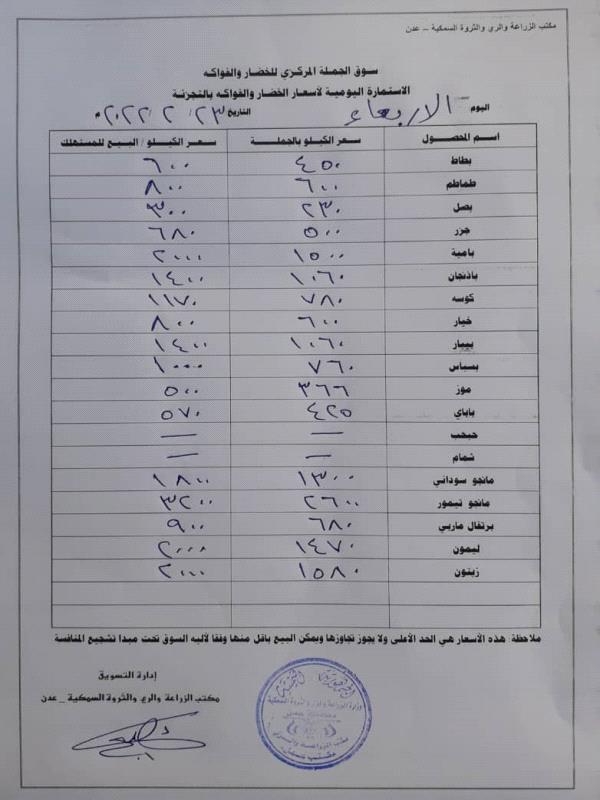 مكتب الزراعة والري والثروة السمكية – عدن
سوق الجملة المركزي للخضار والفواكه
الاستمارة اليومية لأسعار الخضار والفواكه بالتجزئة
اليوم الاربعاء التاريخ ٢٣/٢/٢٠٢٢م
اسم المحصول سعر الكيلو بالجملة سعر الكيلو / البيع للمستهلك
بطاط ٤٥٠ ٦٠٠
طماطم ٦٠٠ ٨٠٠
بصل ٢٣٠ ٣٠٠
جزر ٥٠٠ ٦٨٠
بامية ١٥٠٠ ٢٠٠٠
باذنجان ١٠٦٠ ١٤٠٠
كوسه ٧٨٠ ١١٧٠
خيار ٦٠٠ ٨٠٠
بيبار ١٠٦٠ ١٤٠٠
بسباس ٧٦٠ ١٠٠٠
موز ٣٦٦ ٥٠٠
باباي ٤٢٥ ٥٧٠
حبحب — —
شمام — —
مانجو سوداني ١٣٠٠ ١٨٠٠
مانجو تيمور ٢٦٠٠ ٣٢٠٠
برتقال ماربي ٦٨٠ ٩٠٠
ليمون ١٤٧٠ ٢٠٠٠
زيتون ١٥٨٠ ٢٠٠٠
ملاحظة: هذه الأسعار هي الحد الأعلى ولا يجوز تجاوزها ويمكن البيع باقل منها وفقا لأليه السوق تحت مبدا تشجيع المنافسة
إدارة التسويق
مكتب الزراعة والري والثروة السمكية _ عدن